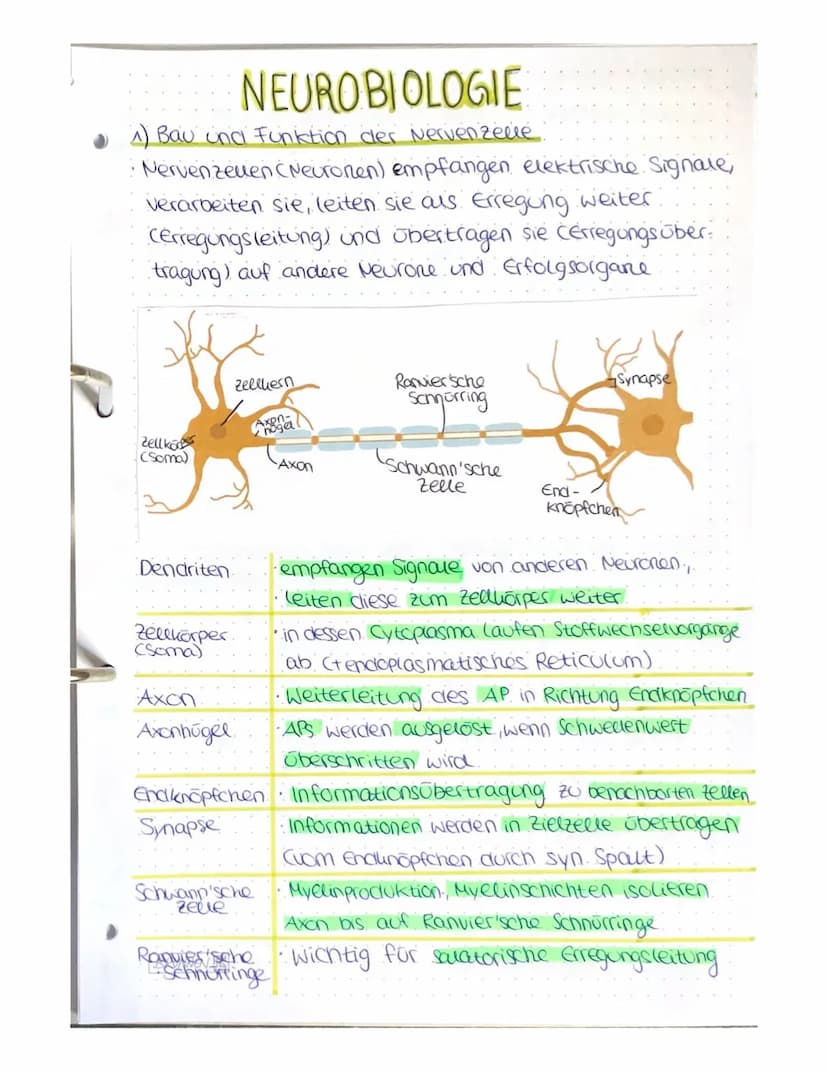 NEUROBIOLOGIE
1) Bau und Funktion der Nervenzelle
· Nervenzellen (Neuronen) empfangen elektrische Signale,
verarbeiten sie, leiten sie als Erregung weiter
(Erregungsleitung) und übertragen sie (Erregungsüber-
tragung) auf andere Neurone und Erfolgsorgane
Zellkern
Ranvier'sche
Schnürring
Synapse
Axon-
hügel
Zellkör
(Soma)
Axon
Schwann'sche
Zelle
End-
knöpfchen
Dendriten
· empfangen Signale von anderen Neuronen,
· leiten diese zum Zellkörper weiter
Zellkörper
(Soma)
· in dessen Cytoplasma laufen Stoffwechselvorgänge
ab (+endoplasmatisches Reticulum)
Axon
· Weiterleitung des AP in Richtung Endknöpfchen
Axonhügel
· APs werden ausgelöst, wenn Schwellenwert
überschritten wird
Endknöpfchen
· Informationsübertragung zu benachbarten Zellen
Synapse
· Informationen werden in Zielzelle übertragen
(vom Endknöpfchen durch syn. Spalt)
Schwann'sche
Zelle
· Myelinproduktion, Myelinschichten isolieren
Axon bis auf Ranvier'sche Schnürringe
Ranvier'sche
Schnürringe
· wichtig für saltatorische Erregungsleitung